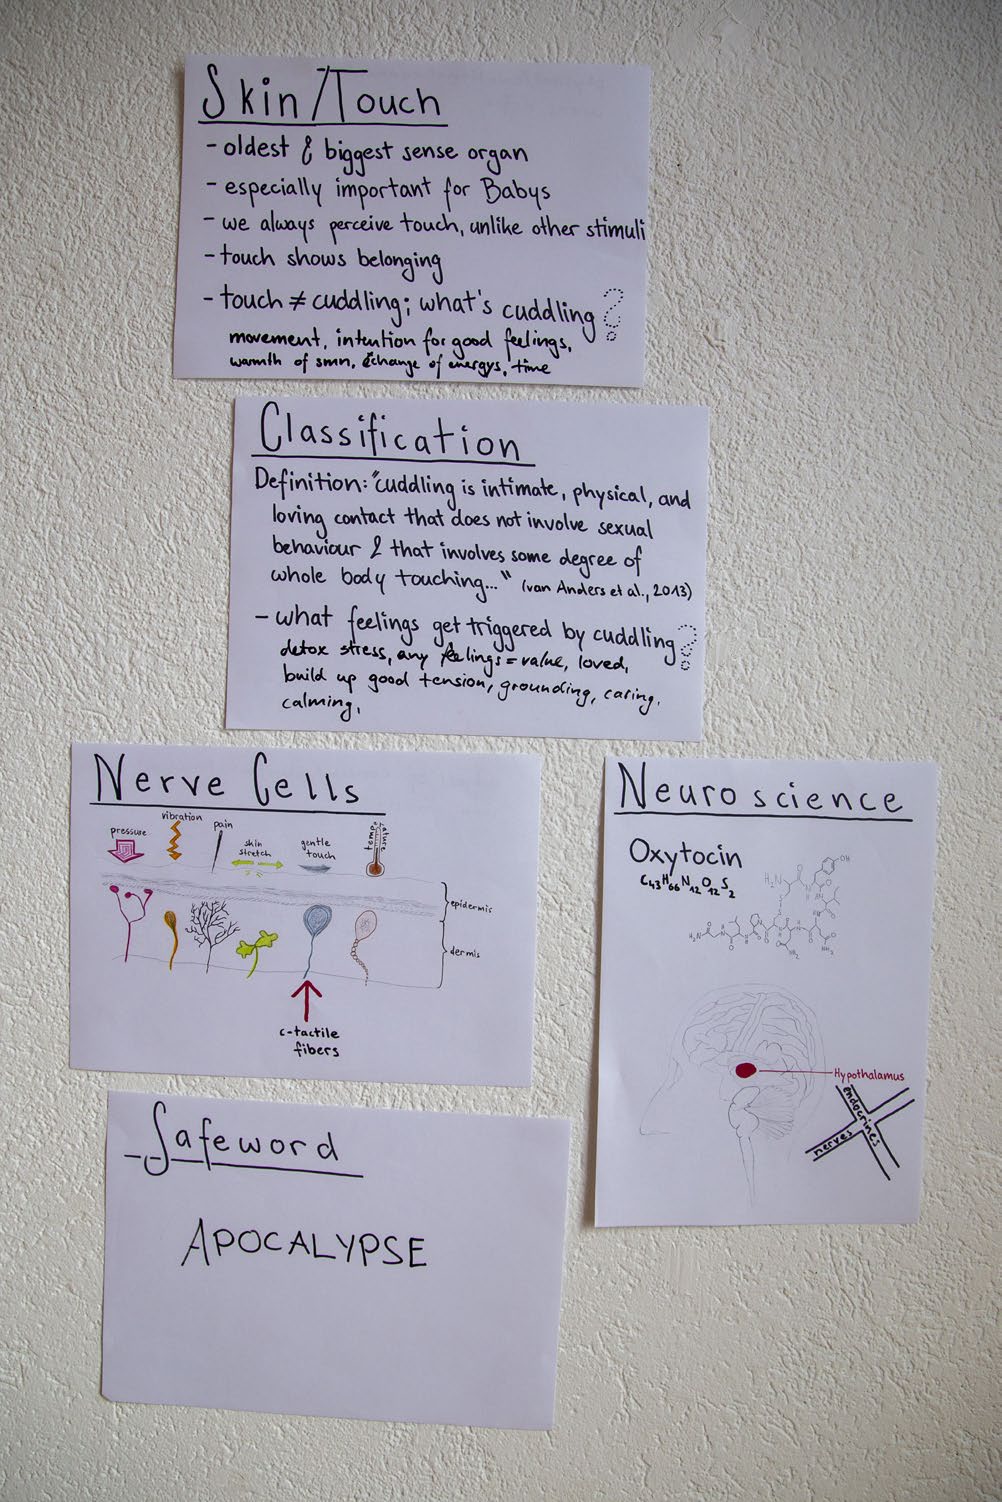 Skin/Touch
- oldest & biggest sense organ
- especially important for Babys
- we always perceive touch, unlike other stimuli
- touch shows belonging
- touch ≠ cuddling; what's cuddling?
movement, intention for good feelings,
warmth of smn, exchange of energys, time
Classification
Definition: "cuddling is intimate, physical, and
loving contact that does not involve sexual
behaviour & that involves some degree of
whole body touching..." (van Anders et al., 2013)
- what feelings get triggered by cuddling?
detox stress, any feelings = value, loved,
build up good tension, grounding, caring,
calming,
Nerve Cells
pressure
vibration
pain
skin
stretch
gentle
touch
temperature
epidermis
dermis
c-tactile
fibers
Neuroscience
Oxytocin
C43H66N12O12S2
OH
H2N
H2N
NH2
NH2
Hypothalamus
endocrines
nerves
Safeword
APOCALYPSE